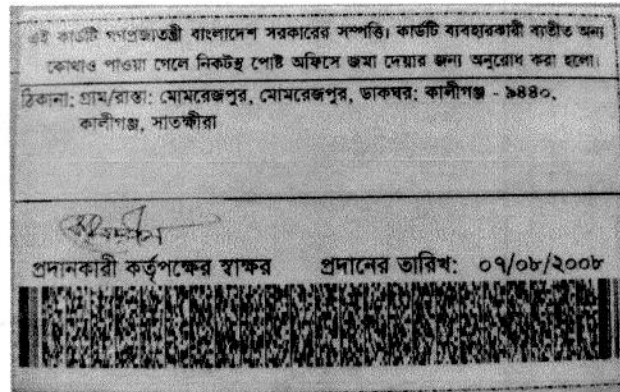 এই কার্ডটি গণপ্রজাতন্ত্রী বাংলাদেশ সরকারের সম্পত্তি। কার্ডটি ব্যবহারকারী ব্যতীত অন্য
কোথাও পাওয়া গেলে নিকটস্থ পোষ্ট অফিসে জমা দেয়ার জন্য অনুরোধ করা হলো।
ঠিকানা: গ্রাম/রাস্তা: মোমরেজপুর, মোমরেজপুর, ডাকঘর: কালীগঞ্জ - ৯৪৪০,
কালীগঞ্জ, সাতক্ষীরা
প্রদানকারী কর্তৃপক্ষের স্বাক্ষর প্রদানের তারিখ: ০৭/০৮/২০০৮